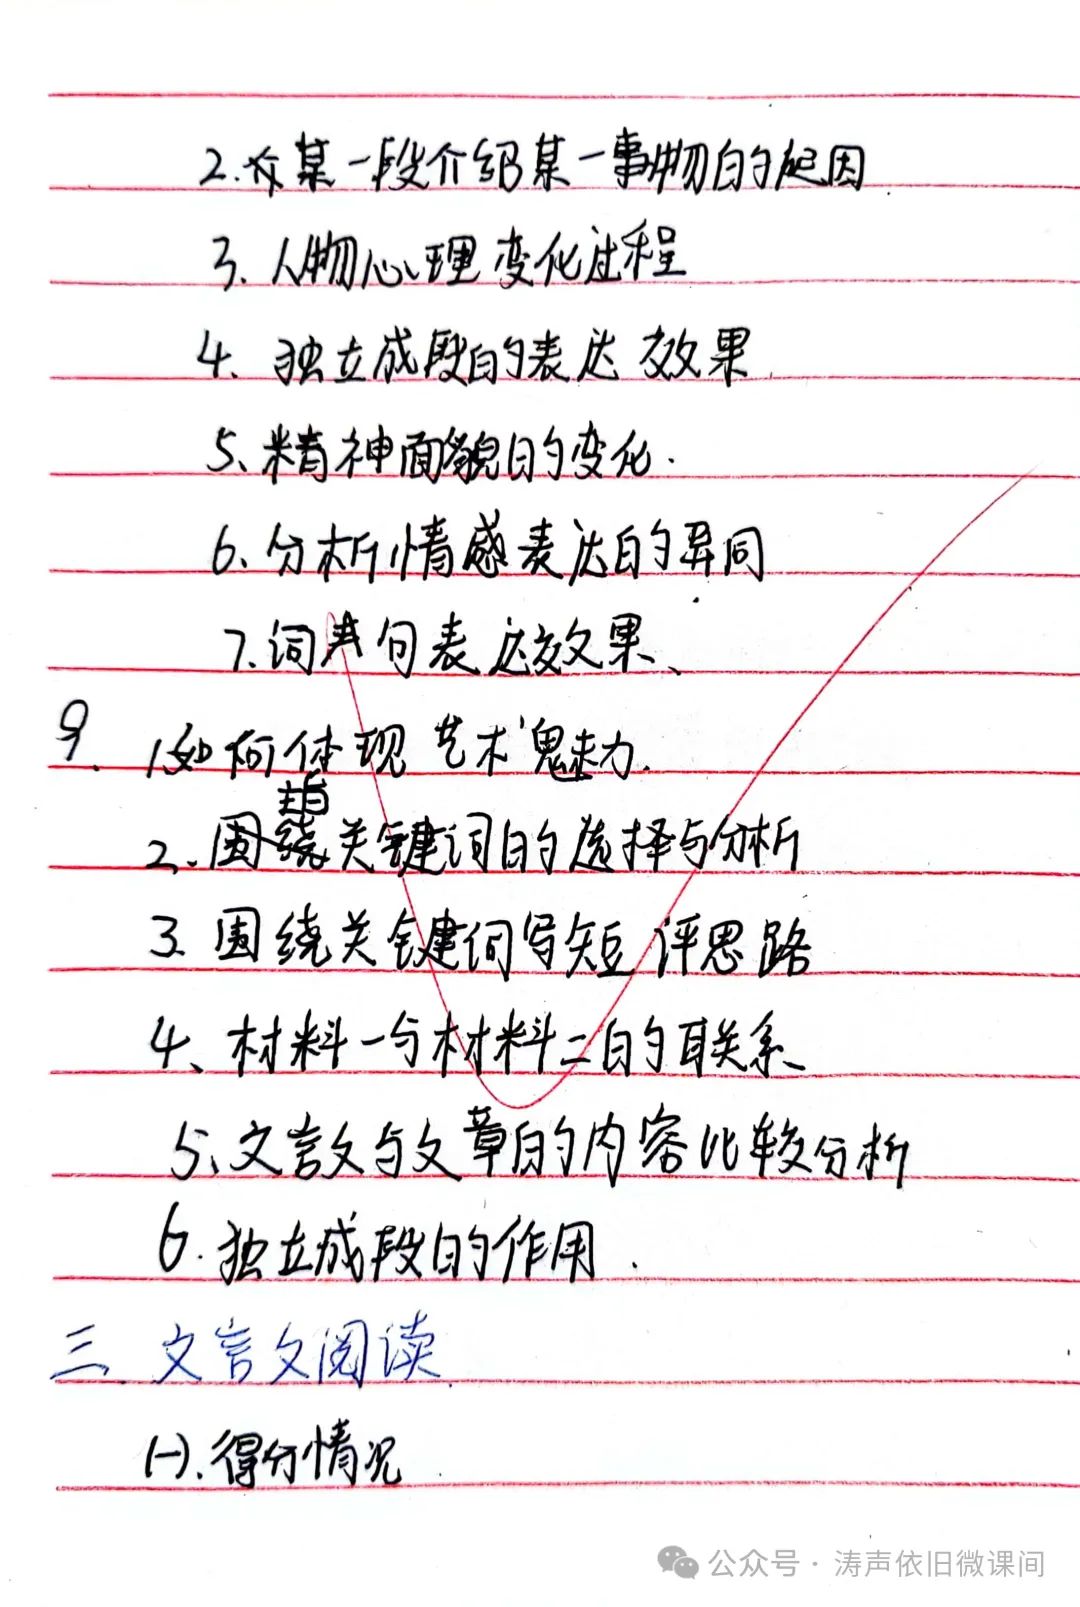 2.某一段介绍某一事物的起因
3.人物心理变化过程
4、独立成段的表达效果
5、精神面貌的变化.
6.分析情感表达的异同
7.词句表达效果、
9.
1.如何体现艺术魅力.
2、围绕关键词的选择与分析
3.围绕关键词写短评思路
4、材料一与材料二的联系、
5、文言文与文章的内容比较分析
6.独立成段的作用.
三、文言文阅读
(一).得分情况
公众号·涛声依旧微课间